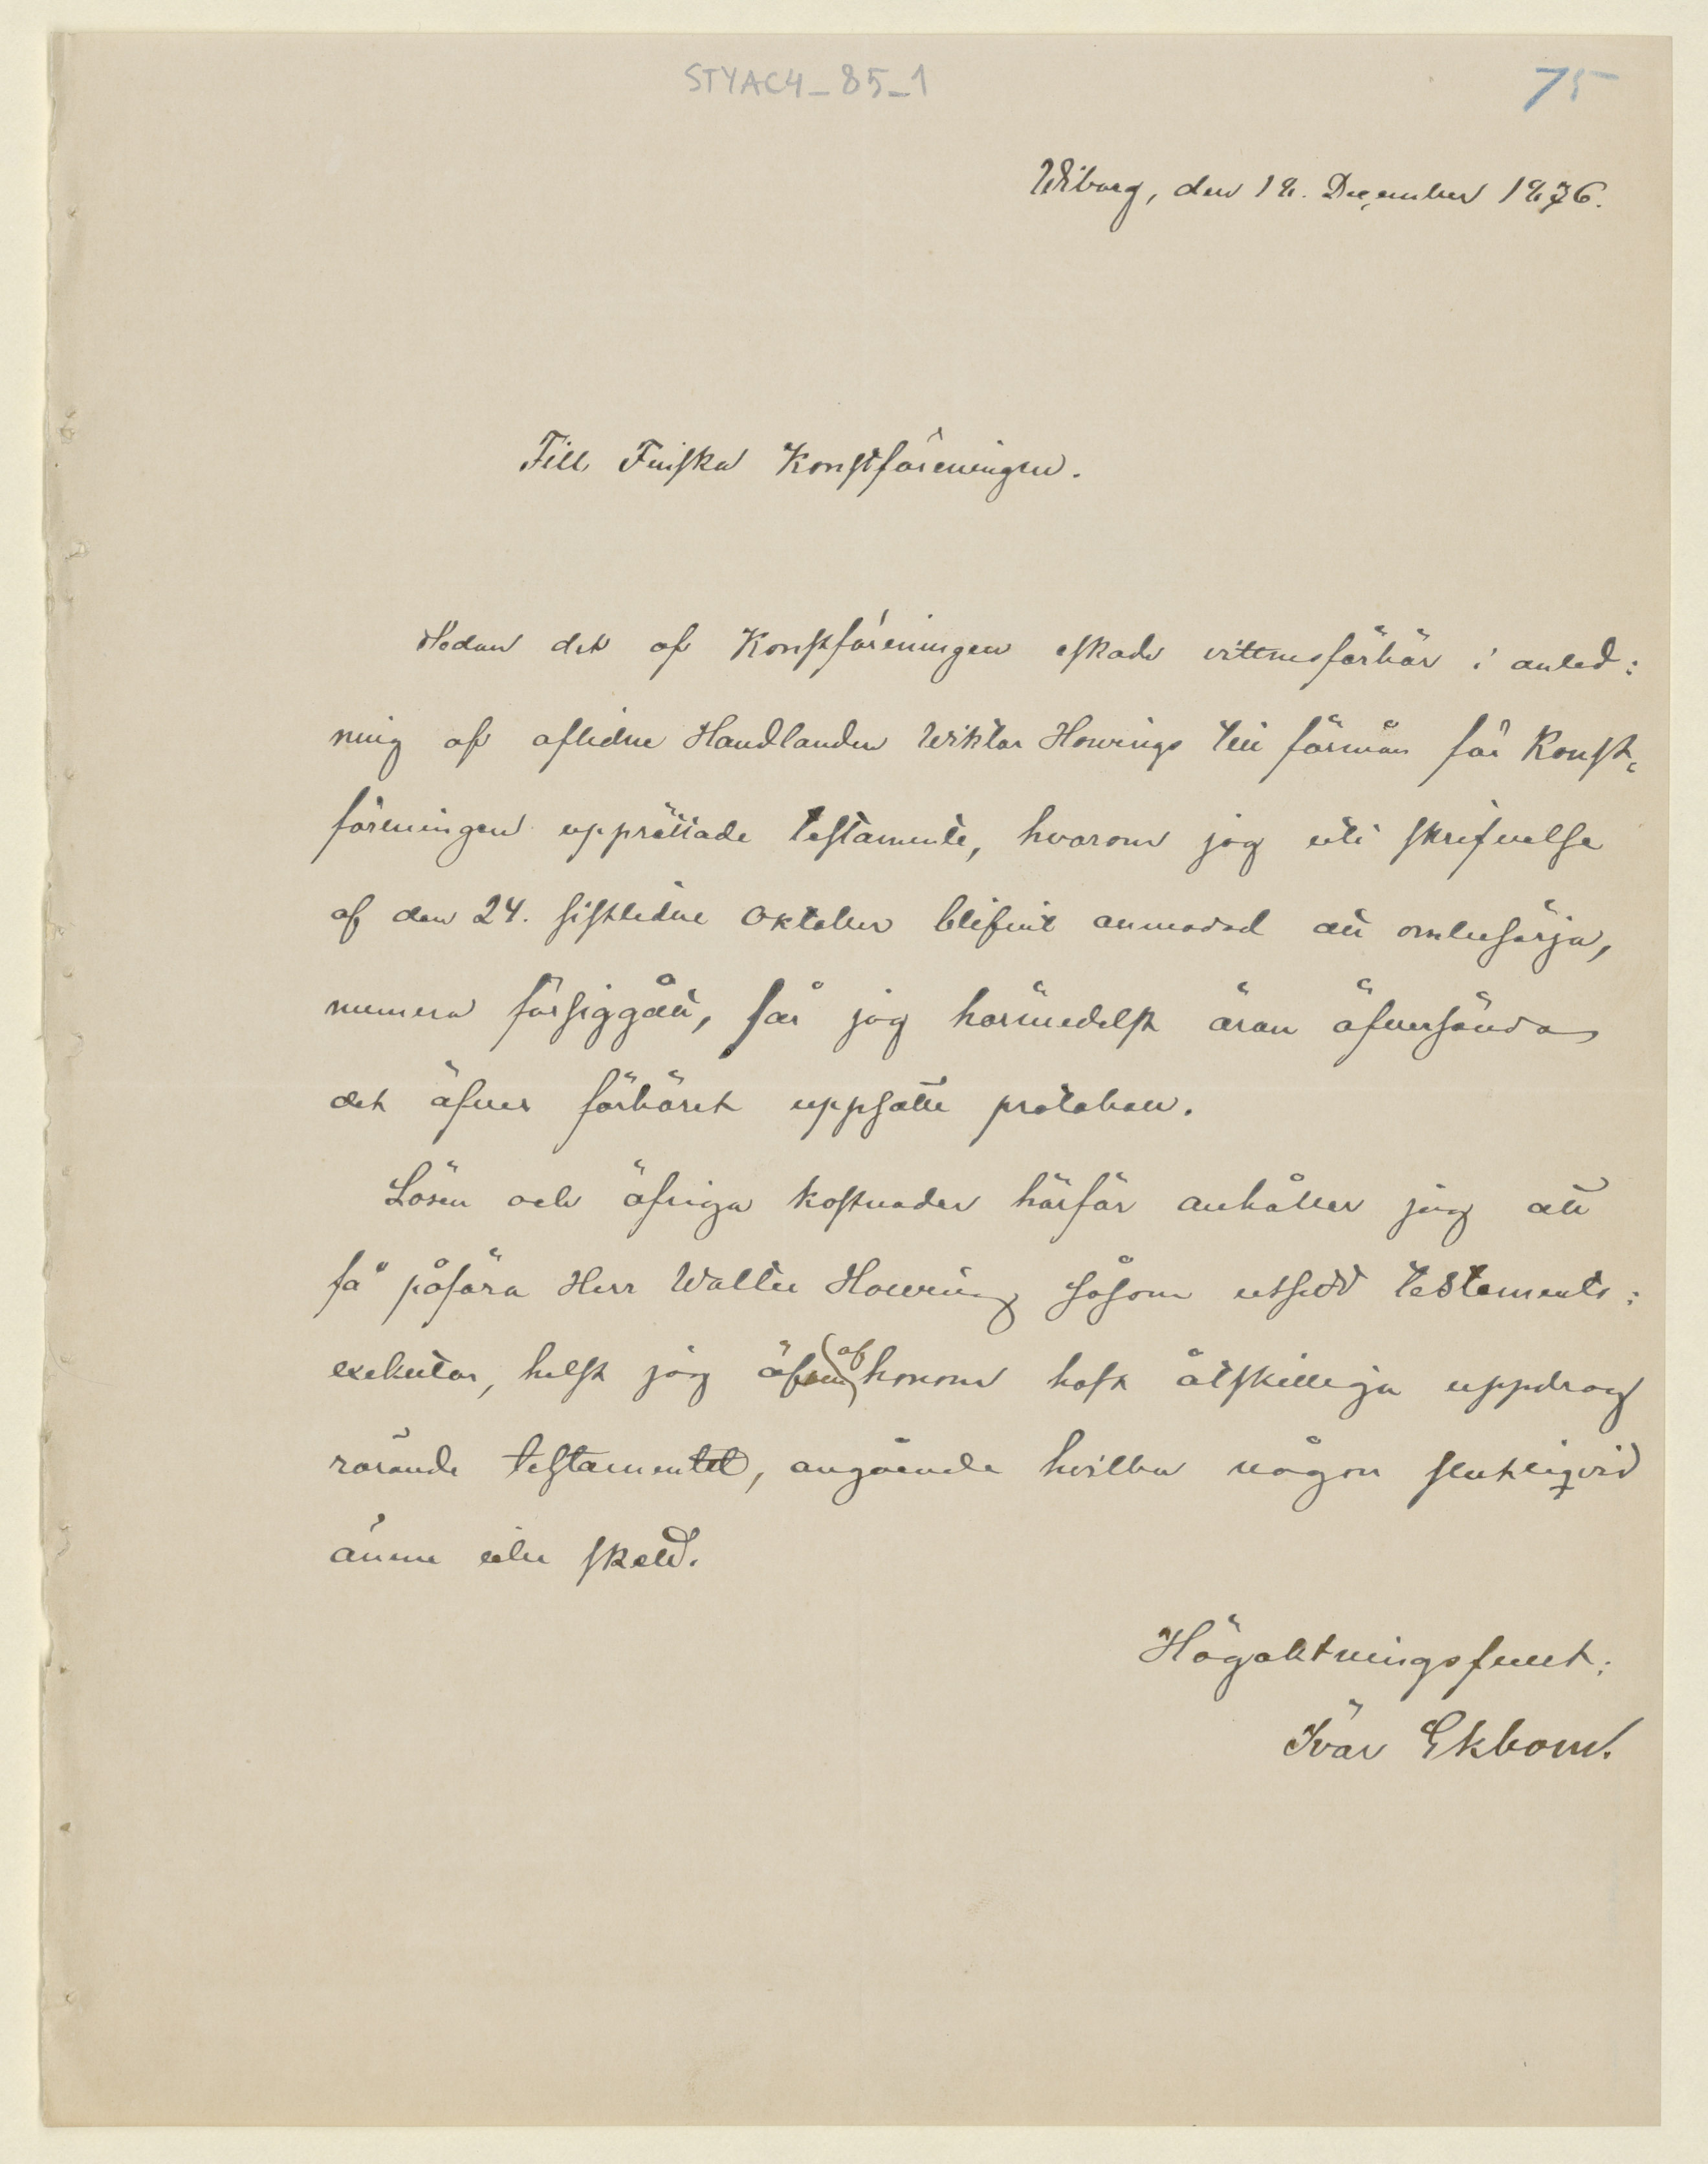 STYAC4_85_1
75
Wiborg, den 18. December 1876.
Till Finska Konstföreningen.
Sedan det af Konstföreningen eskade vittnesförhör i anled:
ning af aflidne Handlanden Wiktor Howings till förmån för Konst:
föreningen upprättade testamente, hvarom jag uti skrifvelse
af den 24. sistlidne Oktober blifvit anmodad att ombesörja,
numera försiggått, får jag härmedelst äran öfversända
det öfver förhöret uppsatte protokoll.
Lösen och öfriga kostnader härför anhåller jag att
få påföra Herr Walter Howing såsom utsedd testaments:
exekutor, helst jag äfven af honom haft åtskilliga uppdrag
rörande testamentet, angående hvilka någon slutliqvid
ännu icke skedd.
Högaktningsfullt:
Ivar Ekbom.